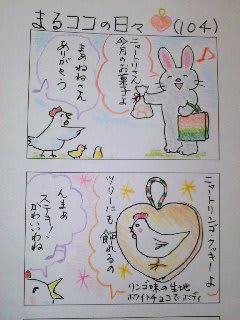 まるココの日々(104)
ニャートリさん
今月のお菓子よ
まぁねねさん
ありがとう
ニャートリンゴクッキーよ
ツリーにも飾れるの
んまぁ
ステキ!
かわいいわね
リンゴ味の生地
ホワイトチョコでボディ